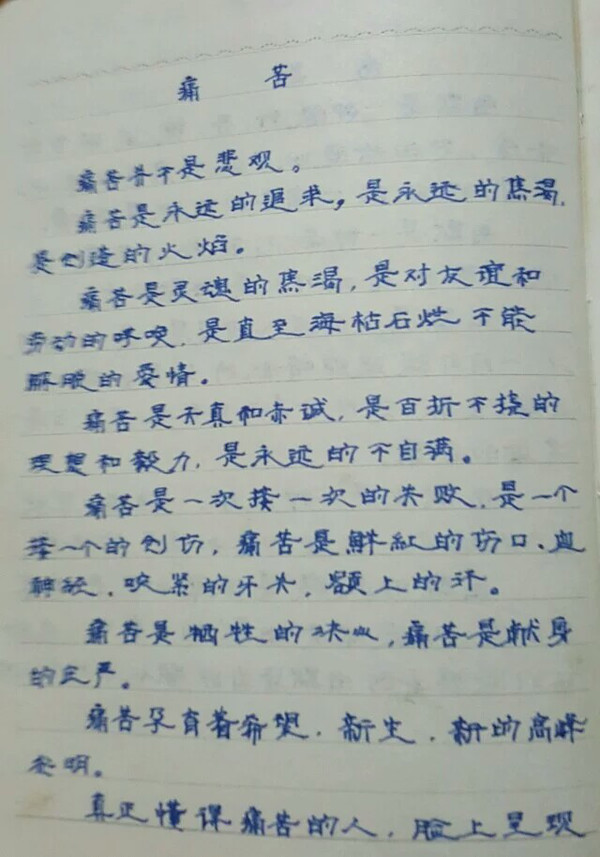 痛 苦
痛苦并不是悲观。
痛苦是永远的追求，是永远的焦渴，
是创造的火焰。
痛苦是灵魂的焦渴，是对友谊和
劳动的呼唤，是直至海枯石烂不能
解脱的爱情。
痛苦是天真和赤诚，是百折不挠的
理想和毅力，是永远的不自满。
痛苦是一次接一次的失败，是一个
接一个的创伤，痛苦是鲜红的伤口、血
，咬紧的牙关，额上的汗。
痛苦是牺牲的决心，痛苦是献身
的庄严。
痛苦孕育着希望，新生，新的高峰
光明。
真正懂得痛苦的人，脸上呈现